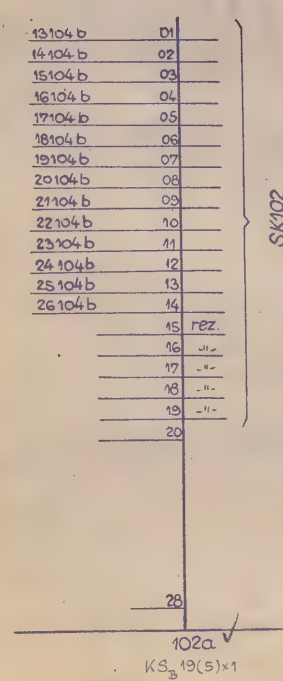 13104b 01
14104b 02
15104b 03
16104b 04
17104b 05
18104b 06
19104b 07
20104b 08
21104b 09
22104b 10
23104b 11
24104b 12
25104b 13
26104b 14
15 rez.
16 -"-
17 -"-
18 -"-
19 -"-
20
SK102
28
102a √
KS_B 19(5)x1